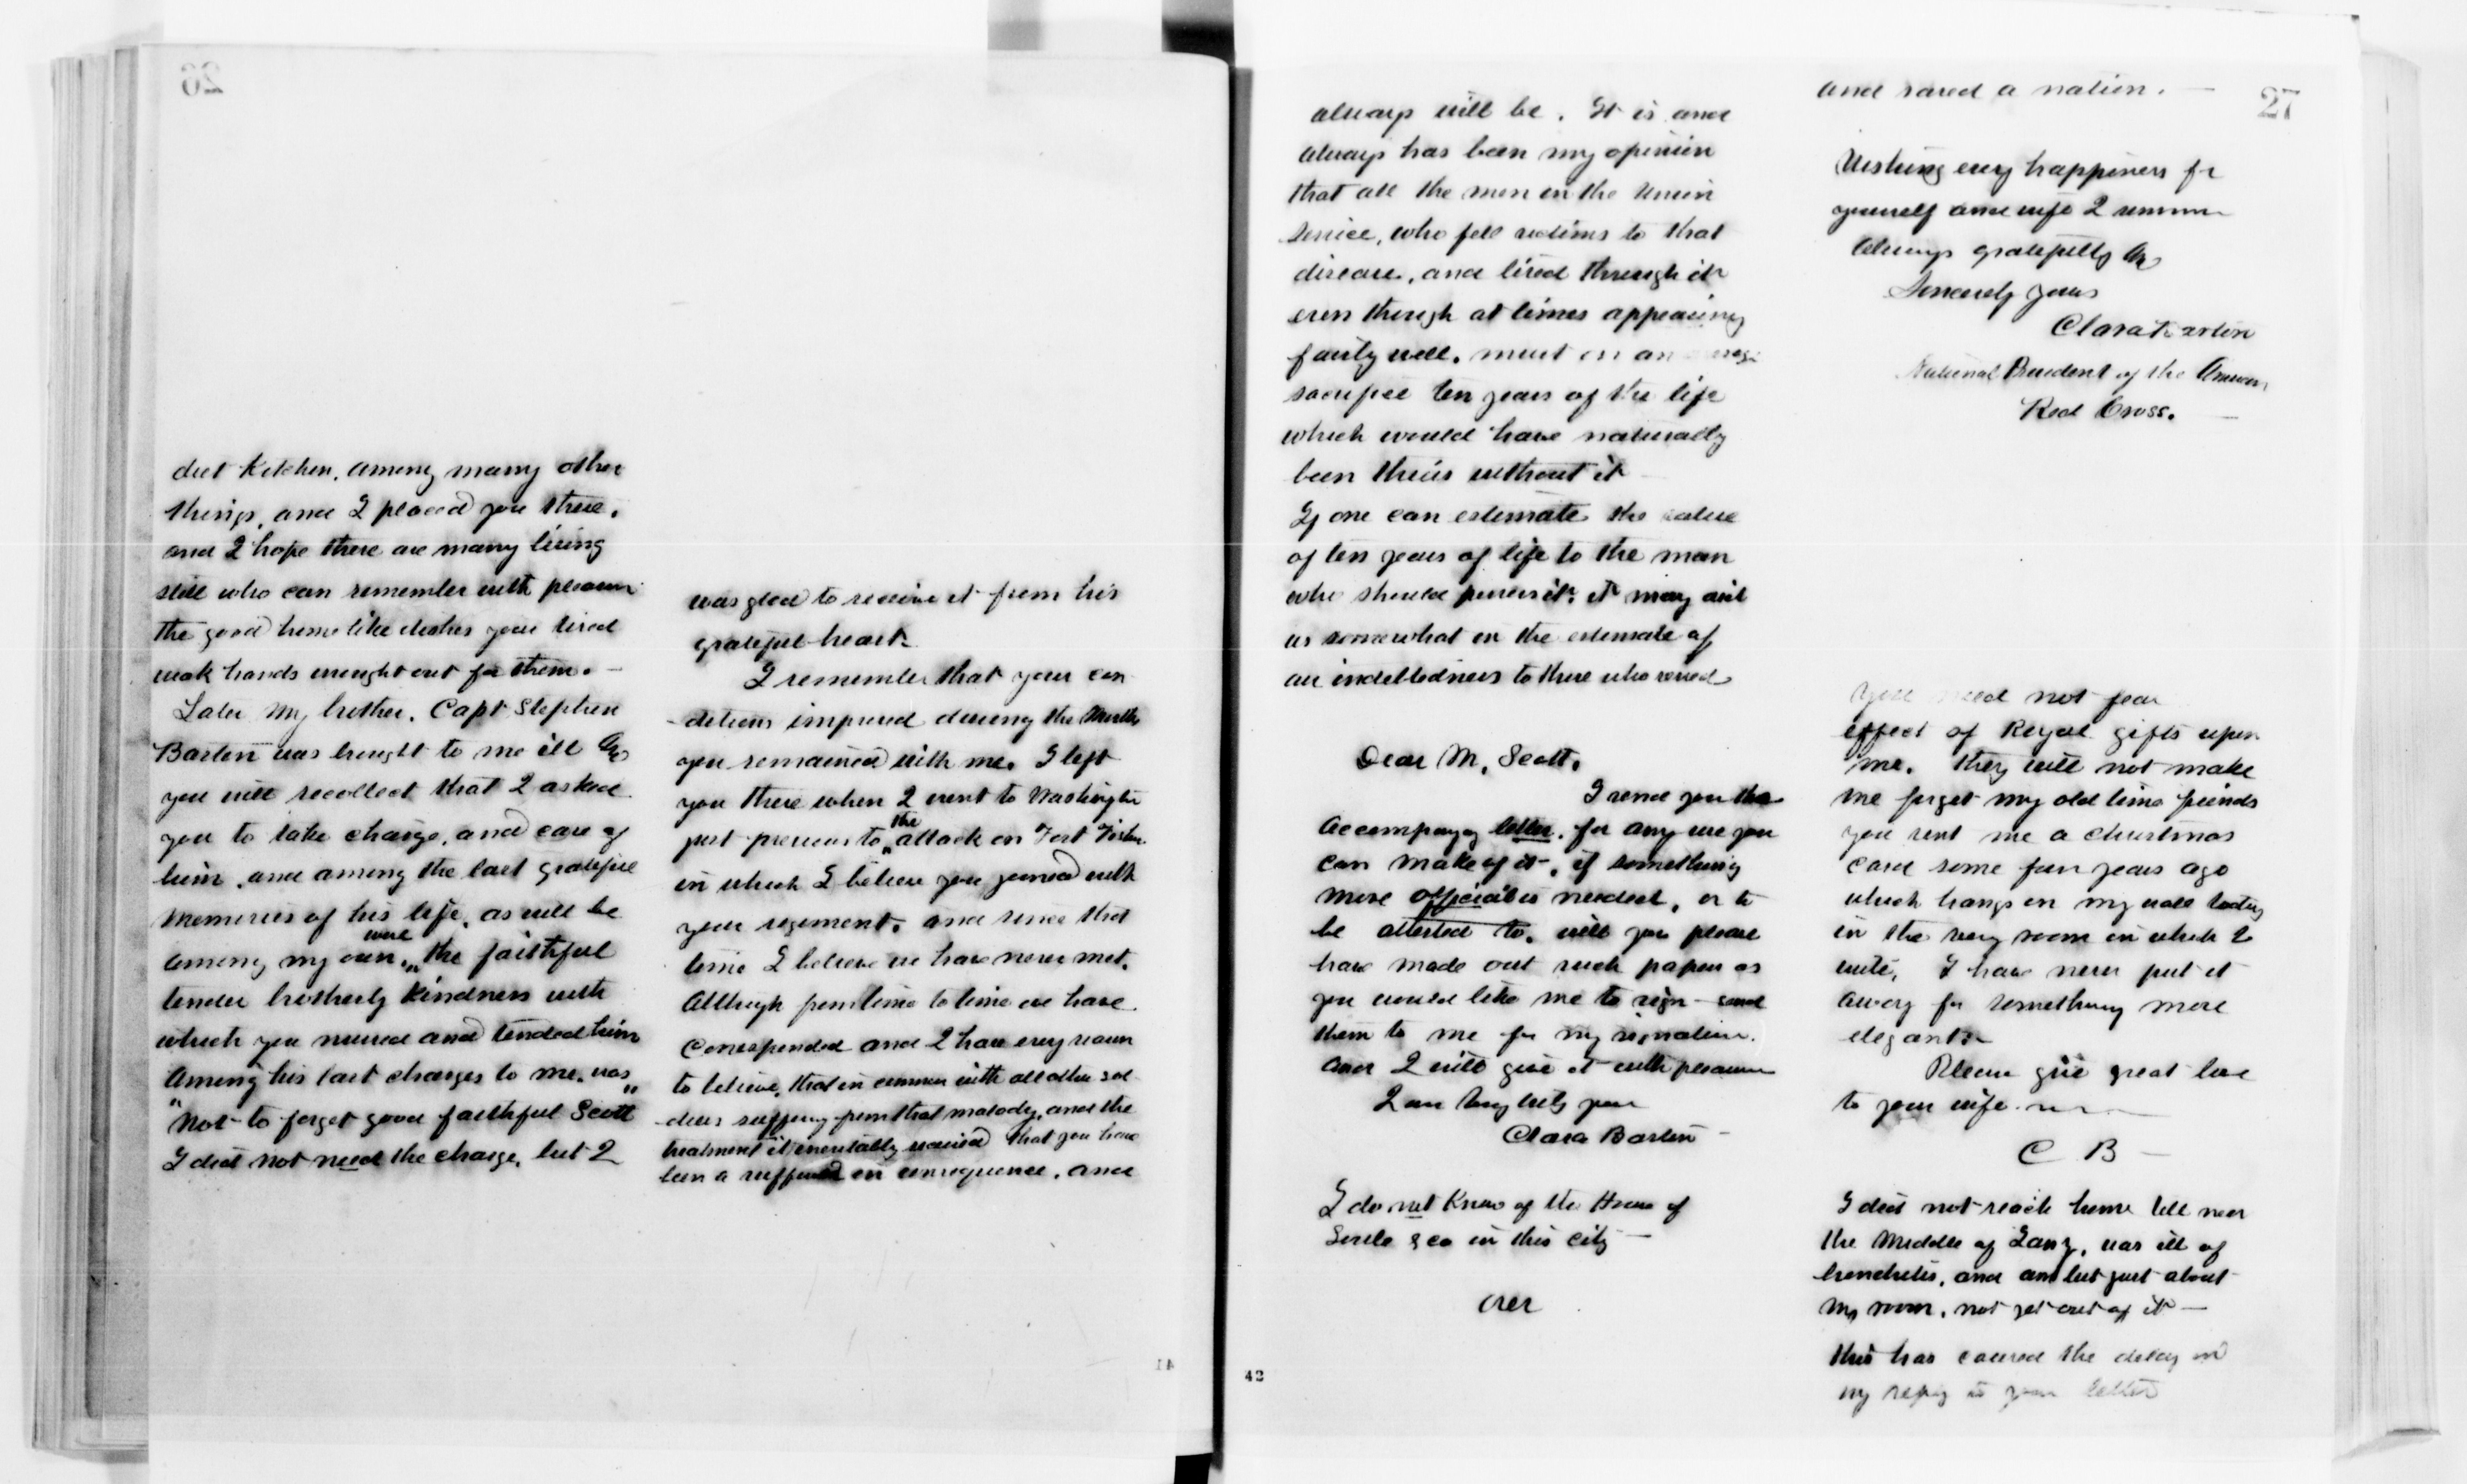 26
diet Kitchen. among many other
things, and I placed you there.
and I hope there are many living
still who can remember with pleasure
the good home like dishes your tired
weak hands wrought out for them. —
Later my brother. Capt Stephen
Barton was brought to me ill &
you will recollect that I asked
you to take charge, and care of
him. and among the last grateful
memories of his life. as will be
among my own. were the faithful
tender brotherly kindness with
which you nursed and tended him
Among his last charges to me. was
"Not to forget good faithful Scott"
I did not need the charge, but I
was glad to receive it from his
grateful heart.
I remember that your con
-ditions improved during the
you remained with me. I left
you there when I went to Washington
just previous to the attack on Fort Fisher
in which I believe you joined with
your regiment. and since that
time I believe we have never met.
Although from time to time we have
corresponded and I have every reason
to believe, that in common with all other sol
-diers suffering from that malady, and the
treatment it inevitably received that you have
been a sufferer in consequence. and
41
always will be. It is and
always has been my opinion
that all the men in the Union
service, who fell victims to that
disease, and lived through it
even though at times appearing
fairly well. must on an
sacrifice ten years of the life
which would have naturally
been theirs without it
If one can estimate the value
of ten years of life to the man
who should possess it. it may aid
us somewhat in the estimate of
our indebtedness to those who saved
Dear Mr. Scott.
I send you the
accompanyg letter. for any use you
can make of it -. if something
more official is needed, or to
be attested to. will you please
have made out such paper as
you would like me to sign - send
them to me for my signature.
and I will give it with pleasure
I am truly yours
Clara Barton -
I do not Know of the House of
& co in this city —
over
42
and saved a nation. —
27
Wishing every happiness for
yourself and wife I remain
Always gratefully &
Sincerely yours
Clara Barton
National President of the American
Red Cross. —
you need not fear
effect of Royal gifts upon
me. they will not make
me forget my old time friends
you sent me a christmas
card some few years ago
which hangs on my wall today
in the very room in which I
write, I have never put it
away for something more
elegant. -
Please give great love
to your wife.
C B —
I did not reach home till near
the middle of Jany, was ill of
bronchitis, and am but just about
my room. not yet out of it —
this has caused the delay in
my reply to your letter